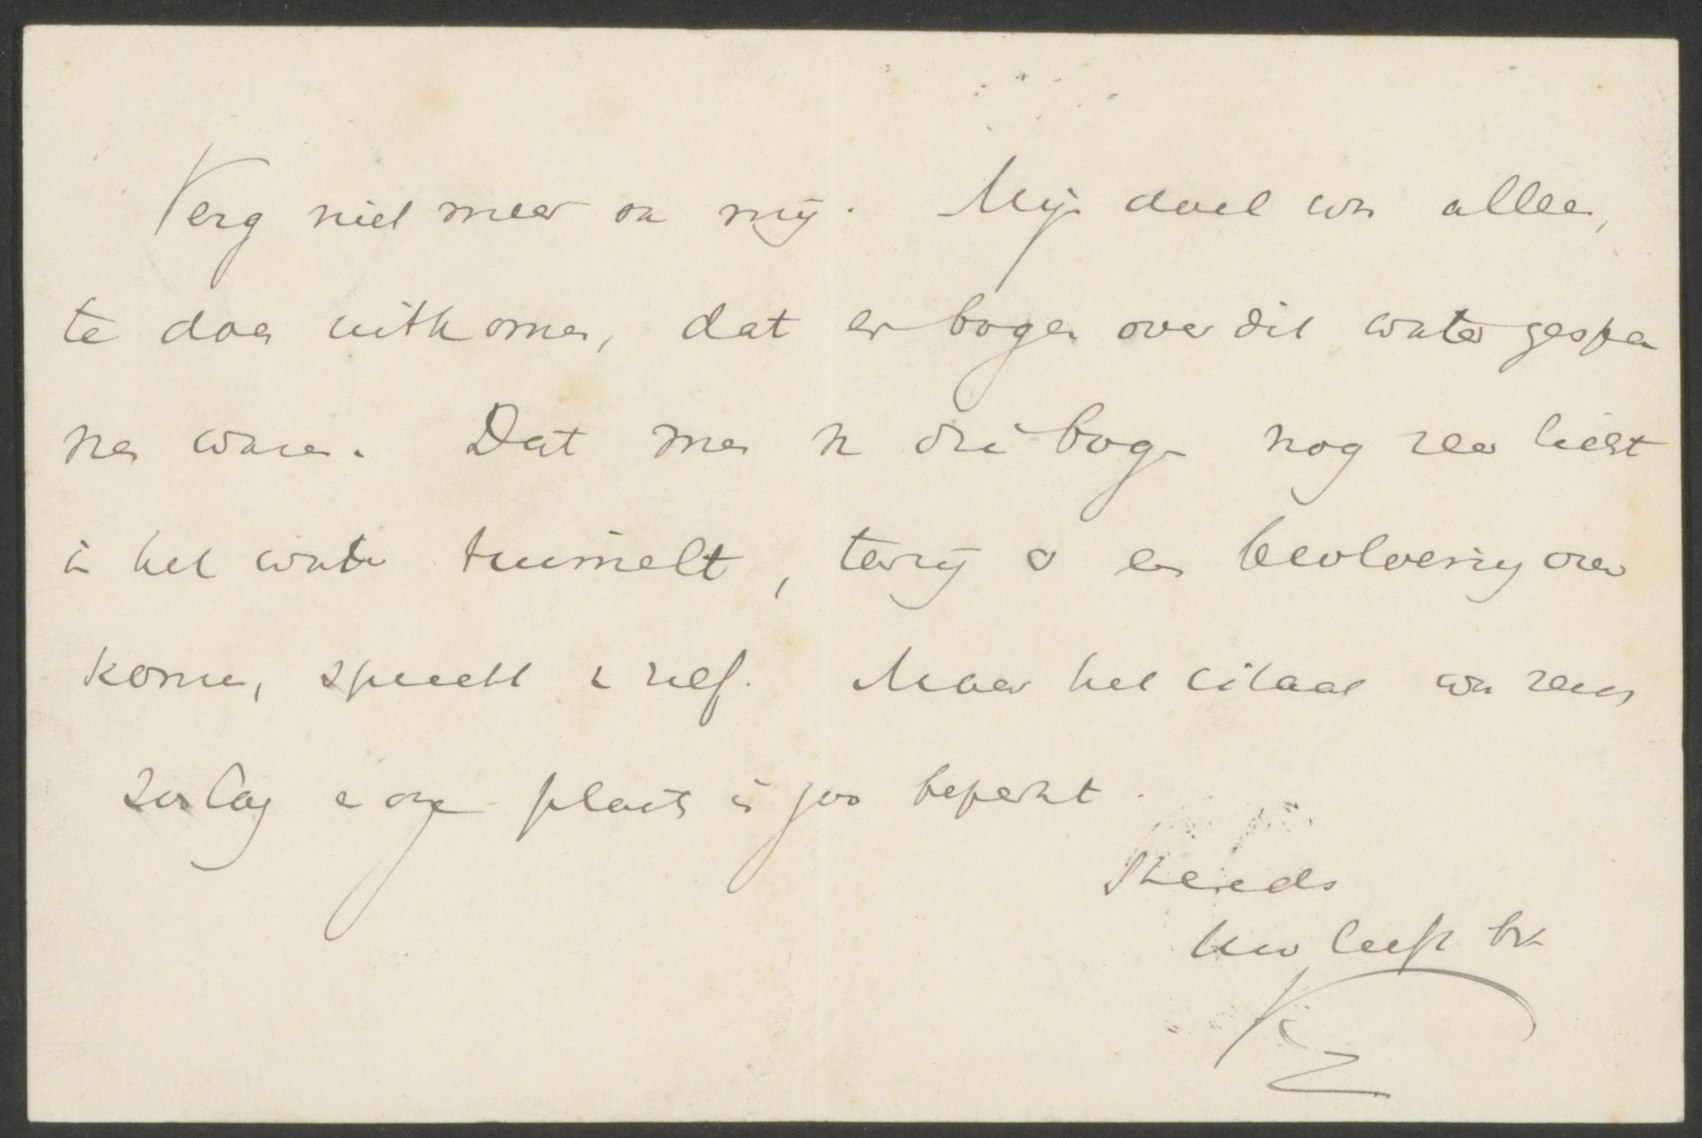 Verg niet meer van mij. Mijn doel was alleen,
te doen uitkomen, dat er bogen over dit water gespan
nen waren. Dat men in die bogen nog zeer licht
in het water tuimelt, tenzij er een bevloering over
kome, spreekt v zelf. Maar het citaat was reeds
zoo lang en onze plaats is zoo beperkt.
Steeds
Uw liefh br
K